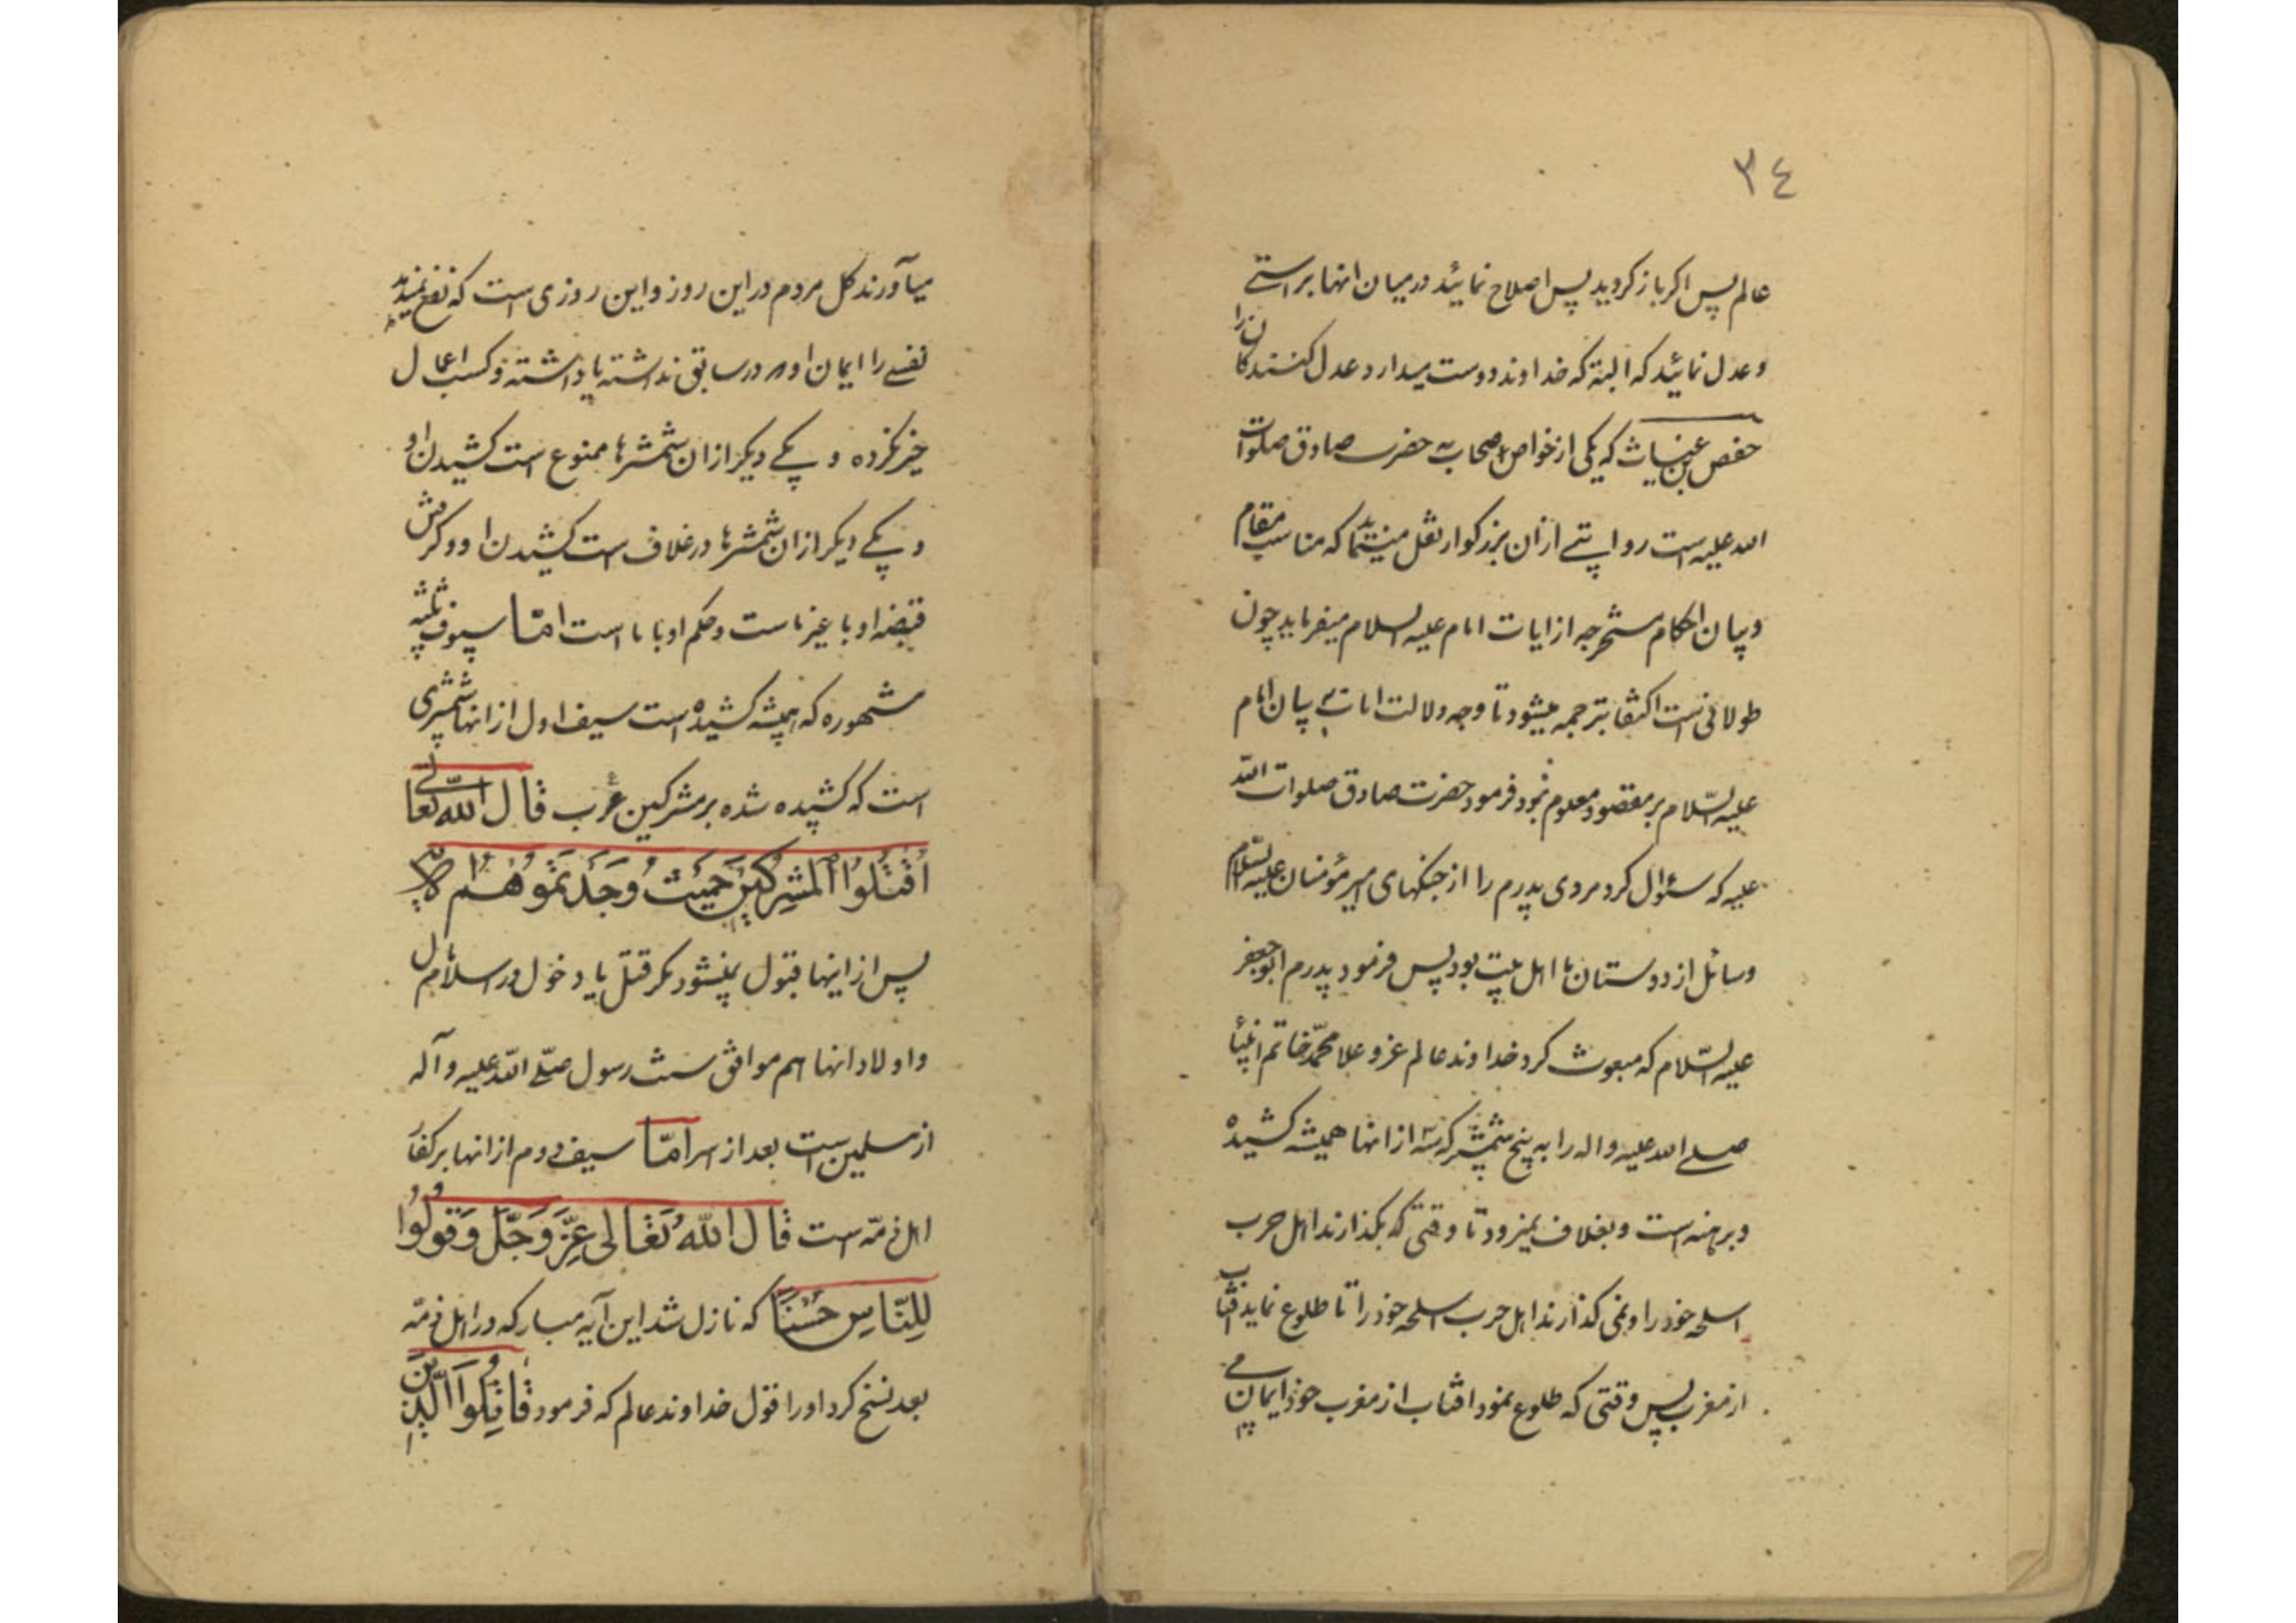 ٣٤
عالم پس اکر باز کردید پس اصلاح نمائید در میان انها براستے
و عدل نمائید که البته که خداوند دوست میدارد عدل کنندکان را
حفص بن غیاث که یکی از خواص اصحاب حضرت صادق صلوات
الله علیه است روایتے از ان بزرکوار نقل مینماید که مناسب مقام
و بیان احکام مستخرجه از ایات امام علیه السلام میفرماید چون
طولانی است اکتفا بترجمه میشود تا وجه دلالت ایات بے بیان امام
علیه السّلام بر مقصود معلوم نمود فرمود حضرت صادق صلوات الله
علیه که سئوال کرد مردی پدرم را از جنکهای امیر مؤمنان علیه السّلام
و سائل از دوستان ما اهل بیت بود پس فرمود پدرم ابو جعفر
علیه السّلام که مبعوث کرد خداوند عالم عز و علا محمّد خاتم انبیا
صلے الله علیه و اله را به پنج شمشیر که سه از انها همیشه کشیده
و برهنه است و بغلاف نمیرود تا وقتی که بکذارند اهل حرب
اسلحه خود را و نمی کذارند اهل حرب اسلحه خود را تا طلوع نماید افتاب
از مغرب پس وقتی که طلوع نمود افتاب از مغرب خود ایمان مے
میآورند کل مردم در این روز و این روزی است که نفع نمیدهد
نفسے را ایمان او که در سابق نداشته یا داشته و کسب اعمال
خیر نکرده و یکے دیکر از ان شمشیرها ممنوع است کشیدن او
و یکے دیکر از ان شمشیرها در غلاف است کشیدن او و کرفتن
قبضه او با غیر ماست و حکم او با ما است امّا سیوف ثلثه
مشهوره که همیشه کشیده است سیف اول از انها شمشیری
است که کشیده شده بر مشرکین عرب قال اللّه تعالی
اُقْتُلُوا الْمُشرِکینَ حَیْثُ وَجَدْتُمُوهُم
پس از اینها قبول نمیشود مکر قتل یا دخول در اسلام
و اولاد انها هم موافق سنت رسول صلّے اللّه علیه و آله
از مسلمین است بعد از اسر امّا سیف دوم از انها بر کفار
اهل ذمّه است قال اللّهُ تَعٰالی عَزَّ وَجَلَّ وَقُولُوا
لِلنّاسِ حُسْنًا که نازل شد این آیه مبارکه در اهل ذمّه
بعد نسخ کرد او را قول خداوند عالم که فرمود قاتِلُوا الَّذینَ